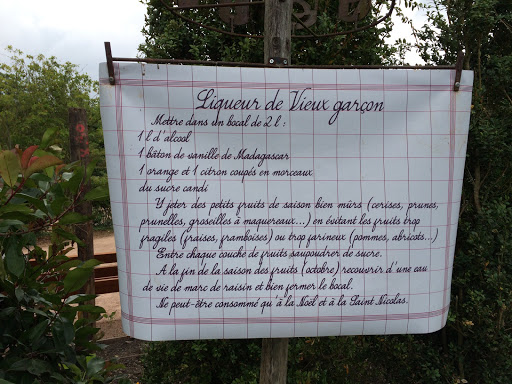 Liqueur de Vieux garçon
Mettre dans un bocal de 2 l :
1 l d'alcool
1 bâton de vanille de Madagascar
1 orange et 1 citron coupés en morceaux
du sucre candi
Y jeter des petits fruits de saison bien mûrs (cerises, prunes,
prunelles, groseilles à maquereaux...) en évitant les fruits trop
fragiles (fraises, framboises) ou trop farineux (pommes, abricots...)
Entre chaque couche de fruits saupoudrer de sucre.
A la fin de la saison des fruits (octobre) recouvrir d'une eau
de vie de marc de raisin et bien fermer le bocal.
Ne peut-être consommé qu'à la Noël et à la Saint Nicolas.